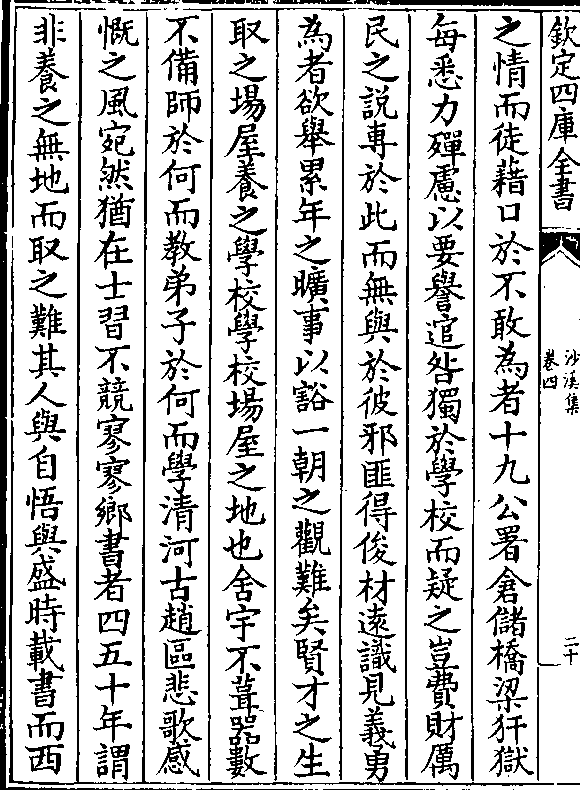 欽定四庫全書
沙溪集
卷四
二十
之情而徒藉口於不敢為者十九公署倉儲橋梁犴獄
每悉力殫慮以要譽逭咎獨於學校而疑之豈費財厲
民之說専於此而無與於彼邪匪得俊材遠識見義勇
為者欲舉累年之曠事以豁一朝之觀難矣賢才之生
取之場屋養之學校學校場屋之地也舍宇不葺器數
不備師於何而教弟子於何而學清河古趙區悲歌感
慨之風宛然猶在士習不競寥寥鄉書者四五十年謂
非養之無地而取之難其人與自悟與盛時載書而西